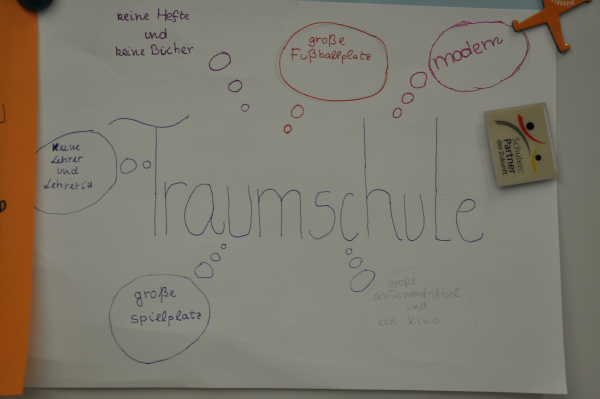 keine Hefte
und
keine Bücher
große
Fußballplatz
modern
Keine
Lehrer
und
Lehrerin
Traumschule
Schulen:
Partner
der Zukunft
große
spielplatz
große
schwimmpool
und
ein Kino